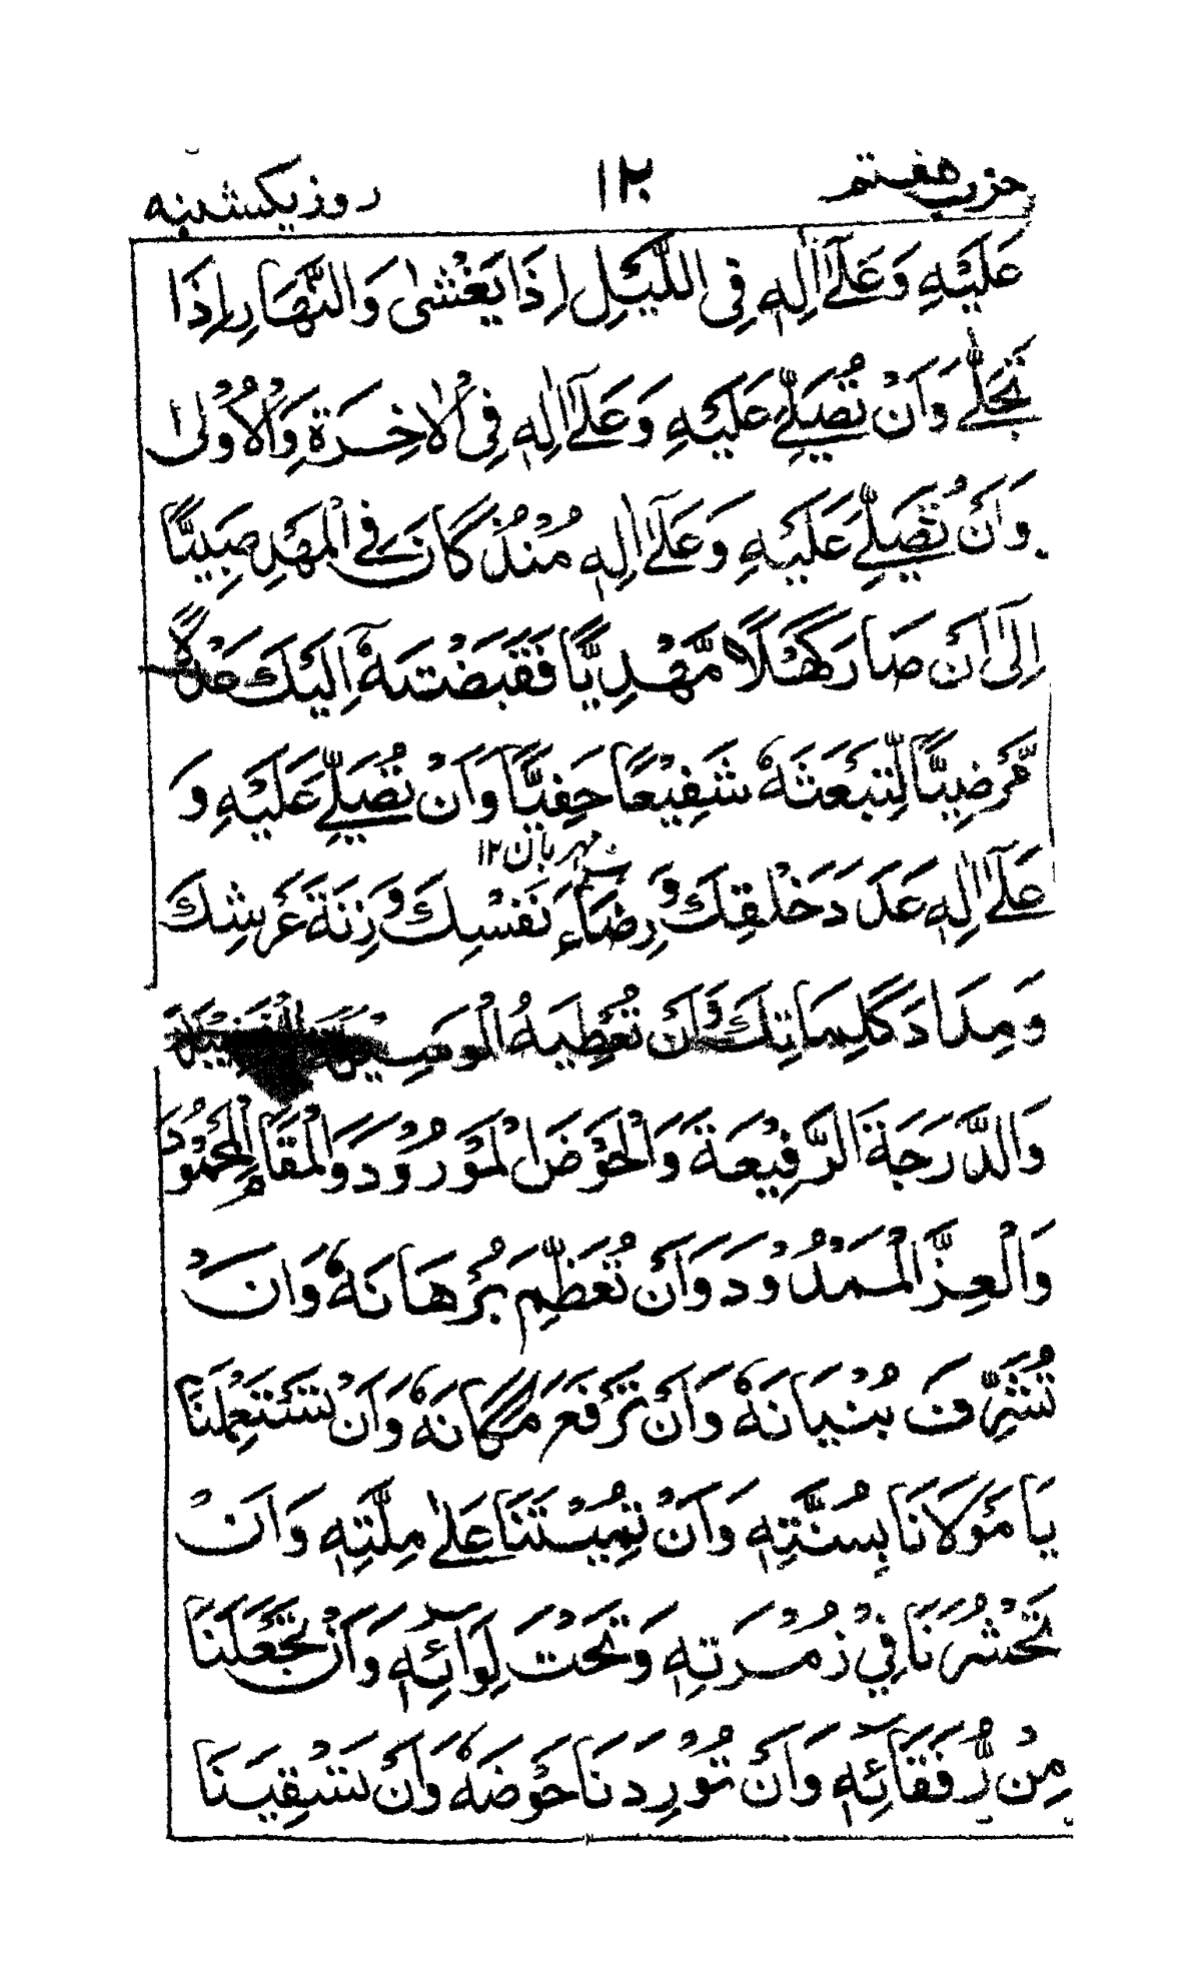 حزب هفتم ١٢ روز یکشنبه
عَلَيْهِ وَعَلٰٓى اٰلِهٖ فِى اللَّيْلِ اِذَا يَغْشٰى وَالنَّهَارِ اِذَا
تَجَلّٰى وَاَنْ تُصَلِّىَ عَلَيْهِ وَعَلٰٓى اٰلِهٖ فِى الْاٰخِرَةِ وَالْاُوْلٰى
وَاَنْ تُصَلِّىَ عَلَيْهِ وَعَلٰٓى اٰلِهٖ مُنْذُ كَانَ فِى الْمَهْدِ صَبِيًّا
اِلٰٓى اَنْ صَارَ كَهْلًا مَّهْدِيًّا فَقَبَضْتَهٗٓ اِلَيْكَ عَدْلًا
مَّرْضِيًّا لِتَبْعَثَهٗ شَفِيْعًا حَفِيًّا وَاَنْ تُصَلِّىَ عَلَيْهِ وَ
مهربان ١٢
عَلٰٓى اٰلِهٖ عَدَدَ خَلْقِكَ وَرِضَآءَ نَفْسِكَ وَزِنَةَ عَرْشِكَ
وَمِدَادَ كَلِمَاتِكَ وَاَنْ تُعْطِيَهُ الْوَسِيْلَةَ وَالْفَضِيْلَةَ
وَالدَّرَجَةَ الرَّفِيْعَةَ وَالْحَوْضَ الْمَوْرُوْدَ وَالْمَقَامَ الْمَحْمُوْدَ
وَالْعِزَّ الْمَمْدُوْدَ وَاَنْ تُعَظِّمَ بُرْهَانَهٗ وَاَنْ
تُشَرِّفَ بُنْيَانَهٗ وَاَنْ تَرْفَعَ مَكَانَهٗ وَاَنْ تَسْتَعْمِلَنَا
يَا مَوْلَانَا بِسُنَّتِهٖ وَاَنْ تُمِيْتَنَا عَلٰى مِلَّتِهٖ وَاَنْ
تَحْشُرَنَا فِيْ زُمْرَتِهٖ وَتَحْتَ لِوَآئِهٖ وَاَنْ تَجْعَلَنَا
مِنْ رُّفَقَآئِهٖ وَاَنْ تُوْرِدَنَا حَوْضَهٗ وَاَنْ تَسْقِيَنَا